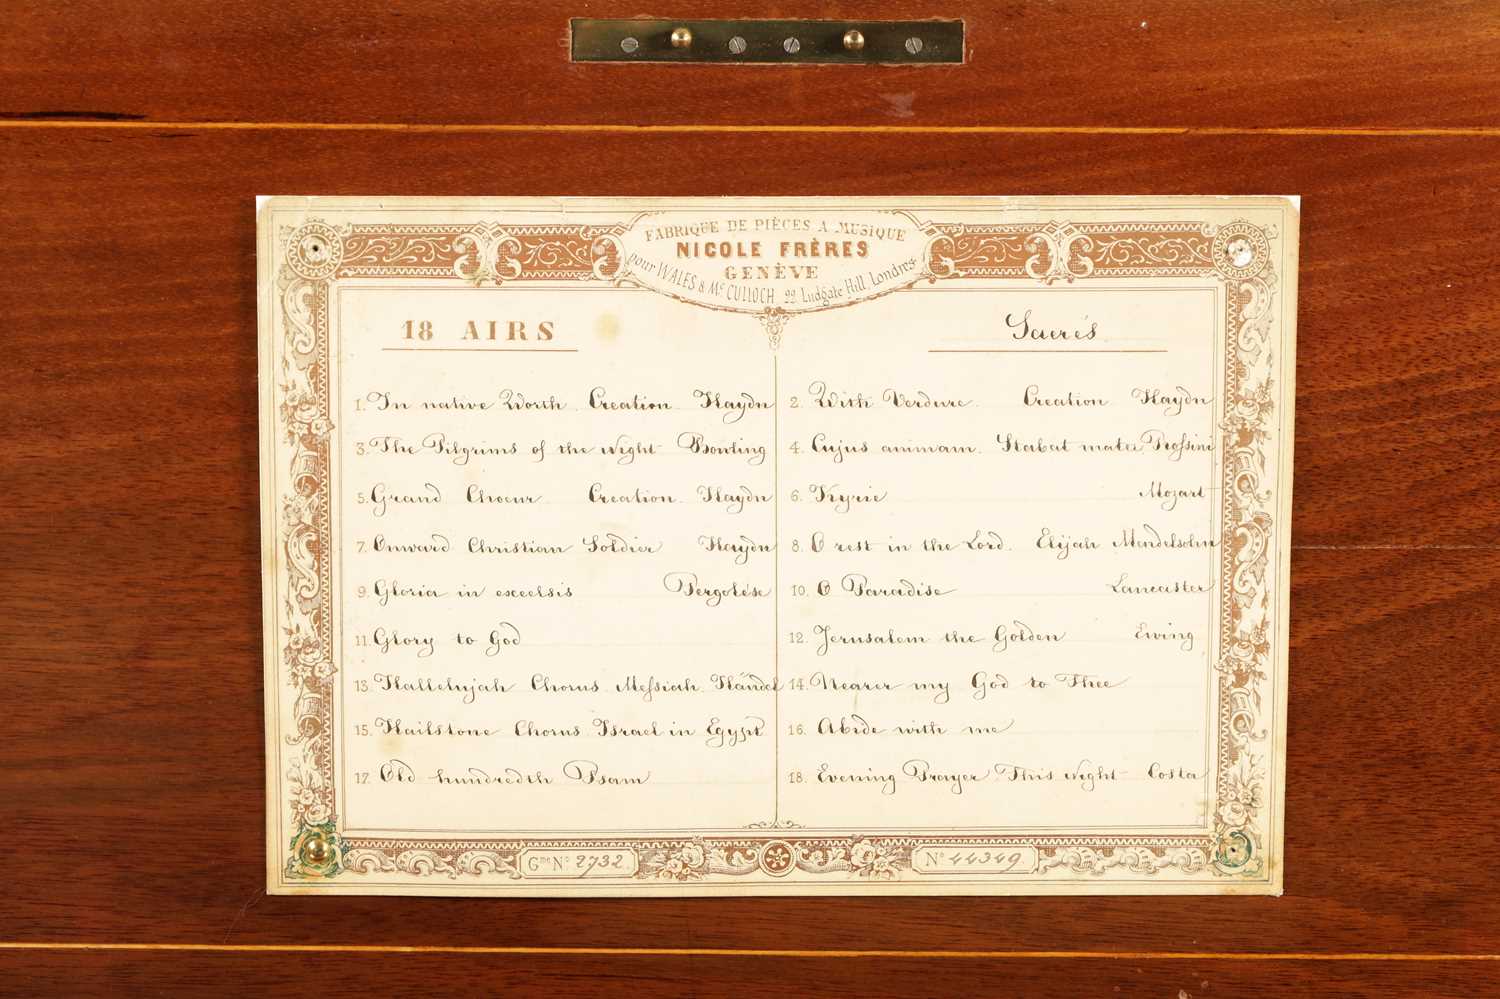 FABRIQUE DE PIÈCES A MUSIQUE
NICOLE FRÈRES
GENÈVE
pour WALES & Mc CULLOCH. 22 Ludgate Hill, Londres
18 AIRS
Sacrés
1. In native Worth. Creation Haydn
2. With Verdure. Creation Haydn
3. The Pilgrims of the night Bonting
4. Cujus animam. Stabat mater Rossini
5. Grand Choeur. Creation Haydn
6. Kyrie Mozart
7. Onward Christian Soldier Haydn
8. O rest in the Lord. Elijah Mendelsohn
9. Gloria in excelsis Pergolése
10. O Paradise Lancaster
11. Glory to God
12. Jerusalem the Golden Ewing
13. Hallelujah Chorus. Messiah. Händel
14. Nearer my God to Thee
15. Hailstone Chorus. Israel in Egypt
16. Abide with me
17. Old hundredth Psam
18. Evening Prayer. This night Costa
Gme No 2732.
No 44349